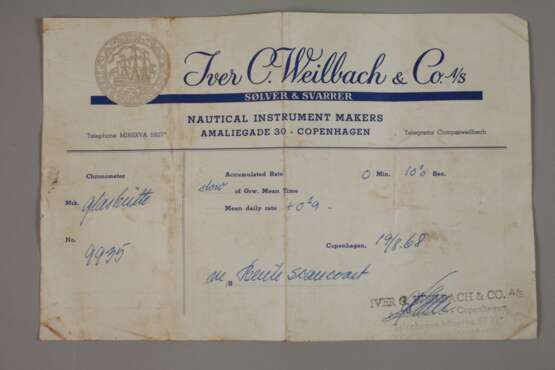 Iver C. Weilbach & Co. A/S
SØLVER & SVARRER
NAUTICAL INSTRUMENT MAKERS
AMALIEGADE 30 - COPENHAGEN
Telephone MINERVA 5927*
Telegrams: Compasweilbach
Chronometer
Accumulated Rate 0 Min. 10.0 Sec.
slow of Grw. Mean Time
Mrk. glashütte
Mean daily rate +0.9 -
No. 9935
Copenhagen, 19/8.68
m/s Bente Scancoast
IVER C. WEILBACH & CO. A/S
Copenhagen